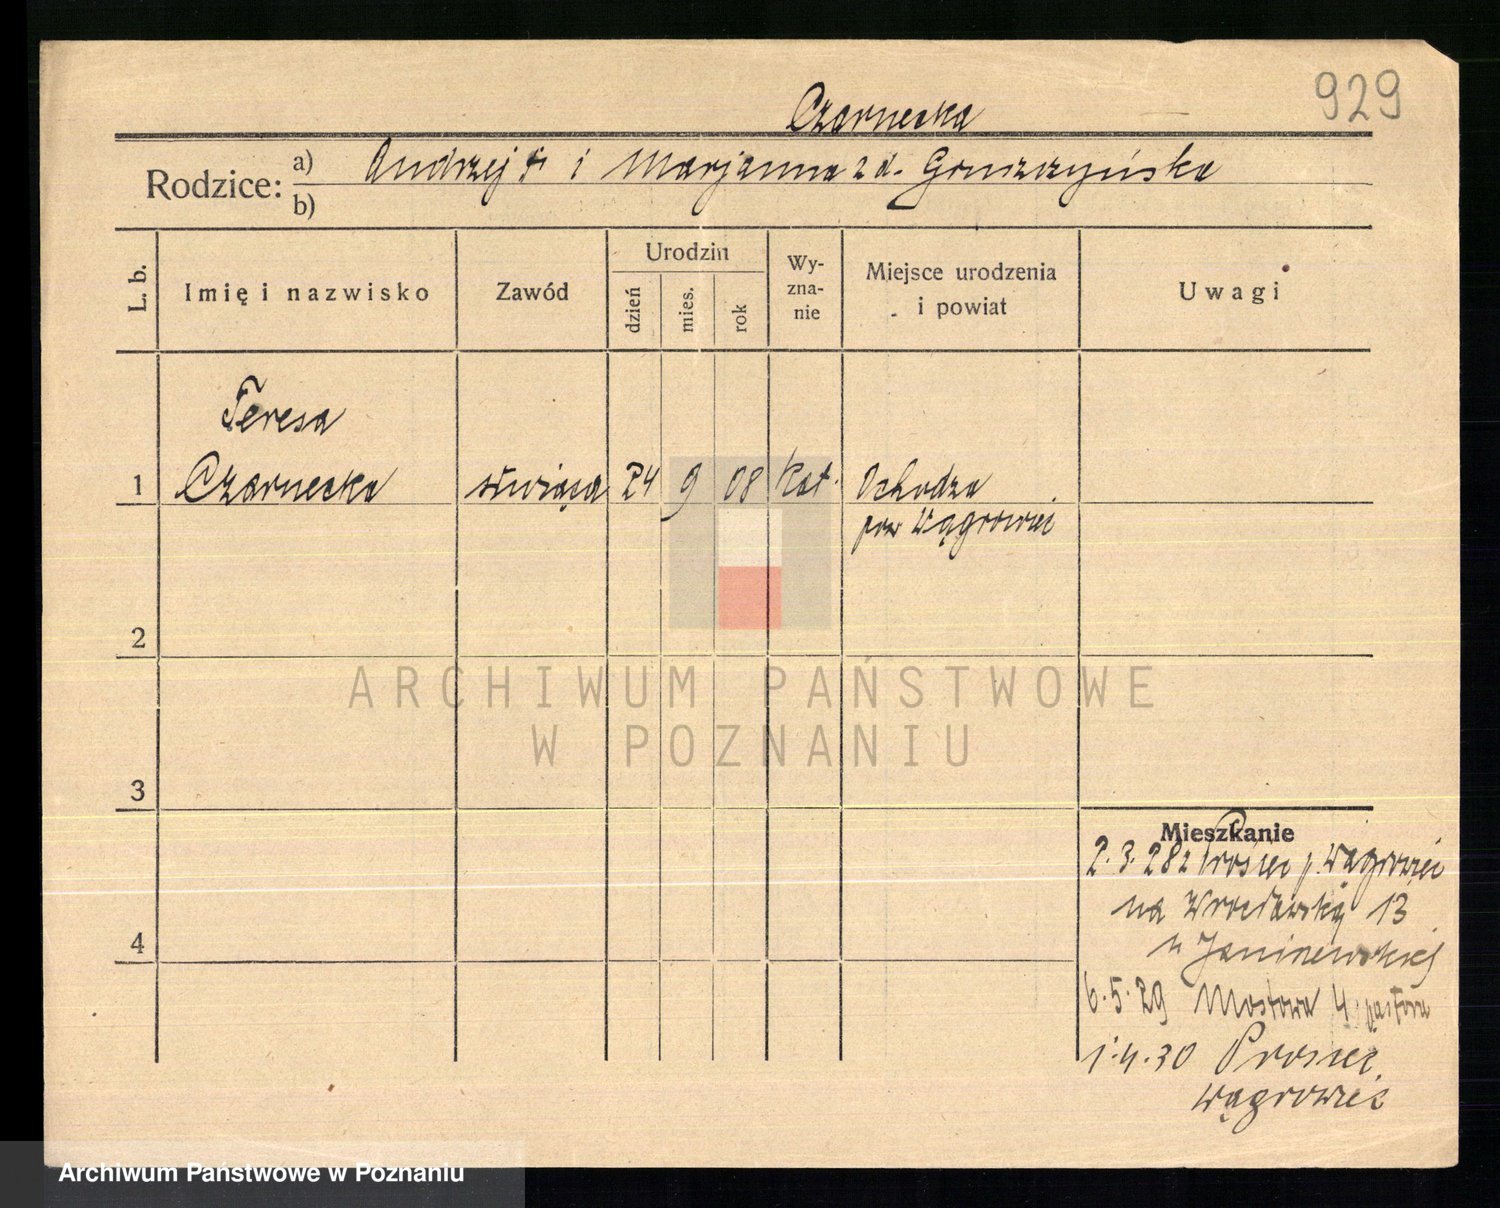 929
Czarnecka
Rodzice: a) Andrzej † i Marjanna z d. Gruszczyńska
b)
L. b.
Imię i nazwisko
Zawód
Urodzin
dzień
mies.
rok
Wy-
zna-
nie
Miejsce urodzenia
i powiat
Uwagi
Teresa
1 Czarnecka służąca 24 9 08 kat. Ochodza
pow Wągrowiec
2
3
4
Mieszkanie
2.3.28 z Prosiec p. Wągrowiec
na Wrocławską 13
u Janiszewskiej
6.5.29 Mostowa 4
1.4.30 Prosiec
Wągrowiec
ARCHIWUM PAŃSTWOWE
W POZNANIU
Archiwum Państwowe w Poznaniu